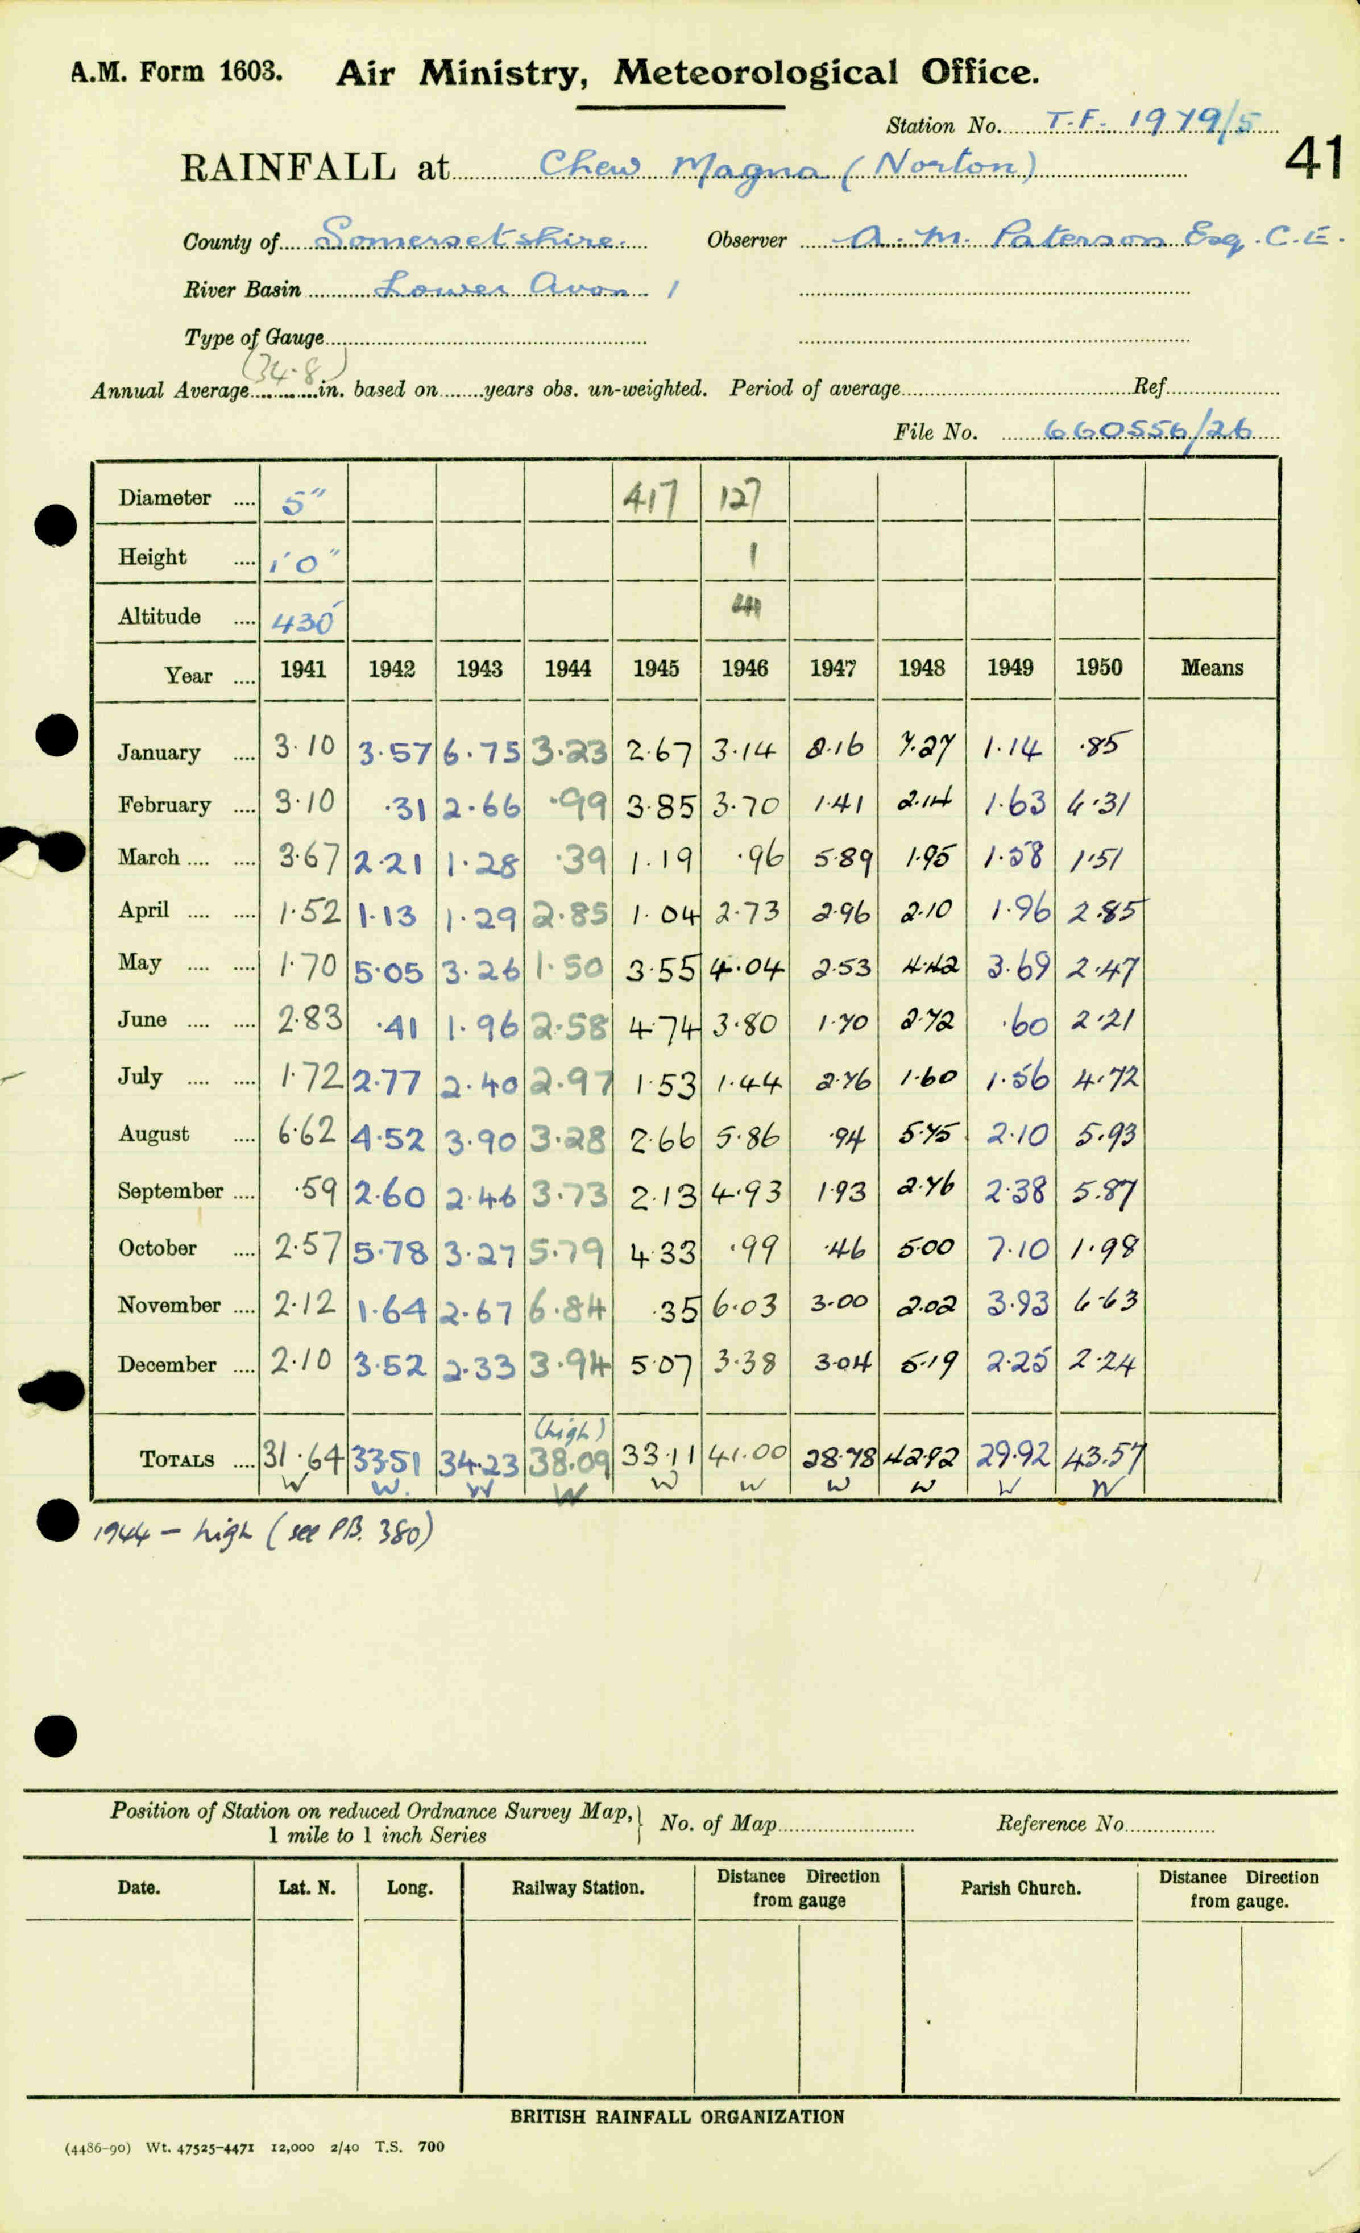 A.M. Form 1603. Air Ministry, Meteorological Office.
Station No. T.F. 1979/5
41
RAINFALL at Chew Magna (Norton)
County of Somersetshire. Observer A. M. Paterson Esq. C.E.
River Basin Lower Avon 1
Type of Gauge
Annual Average (34.8) in. based on years obs. un-weighted. Period of average Ref.
File No. 660556/26
Diameter 5" 417 127
Height 1'0" 1
Altitude 430'
Year 1941 1942 1943 1944 1945 1946 1947 1948 1949 1950 Means
January 3.10 3.57 6.75 3.23 2.67 3.14 2.16 7.27 1.14 .85
February 3.10 .31 2.66 .99 3.85 3.70 1.41 2.14 1.63 6.31
March 3.67 2.21 1.28 .39 1.19 .96 5.89 1.95 1.58 1.51
April 1.52 1.13 1.29 2.85 1.04 2.73 2.96 2.10 1.96 2.85
May 1.70 5.05 3.26 1.50 3.55 4.04 2.53 4.42 3.69 2.47
June 2.83 .41 1.96 2.58 4.74 3.80 1.70 2.72 .60 2.21
July 1.72 2.77 2.40 2.97 1.53 1.44 2.76 1.60 1.56 4.72
August 6.62 4.52 3.90 3.28 2.66 5.86 .94 5.75 2.10 5.93
September .59 2.60 2.46 3.73 2.13 4.93 1.93 2.76 2.38 5.87
October 2.57 5.78 3.27 5.79 4.33 .99 .46 5.00 7.10 1.98
November 2.12 1.64 2.67 6.84 .35 6.03 3.00 2.02 3.93 6.63
December 2.10 3.52 2.33 3.94 5.07 3.38 3.04 5.19 2.25 2.24
(high)
TOTALS 31.64 33.51 34.23 38.09 33.11 41.00 28.78 42.92 29.92 43.57
W W. W W W W W W W W
1944 - high (see P.B. 380)
Position of Station on reduced Ordnance Survey Map, 1 mile to 1 inch Series } No. of Map Reference No.
Date. Lat. N. Long. Railway Station. Distance Direction from gauge Parish Church. Distance Direction from gauge.
BRITISH RAINFALL ORGANIZATION
(4486-90) Wt. 47525-4471 12,000 2/40 T.S. 700